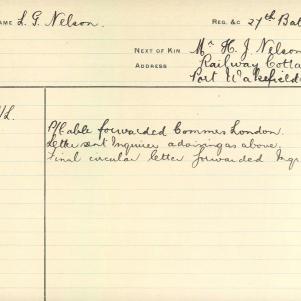 NAME L. G. Nelson. REG. &c 27th Bat
NEXT OF KIN Mr H. J. Nelson
ADDRESS Railway Cotta
Port Wakefield
/L. P/Cable forwarded Commrs London.
Letter sent Inquirer advising as above.
Final circular letter forwarded Inqr